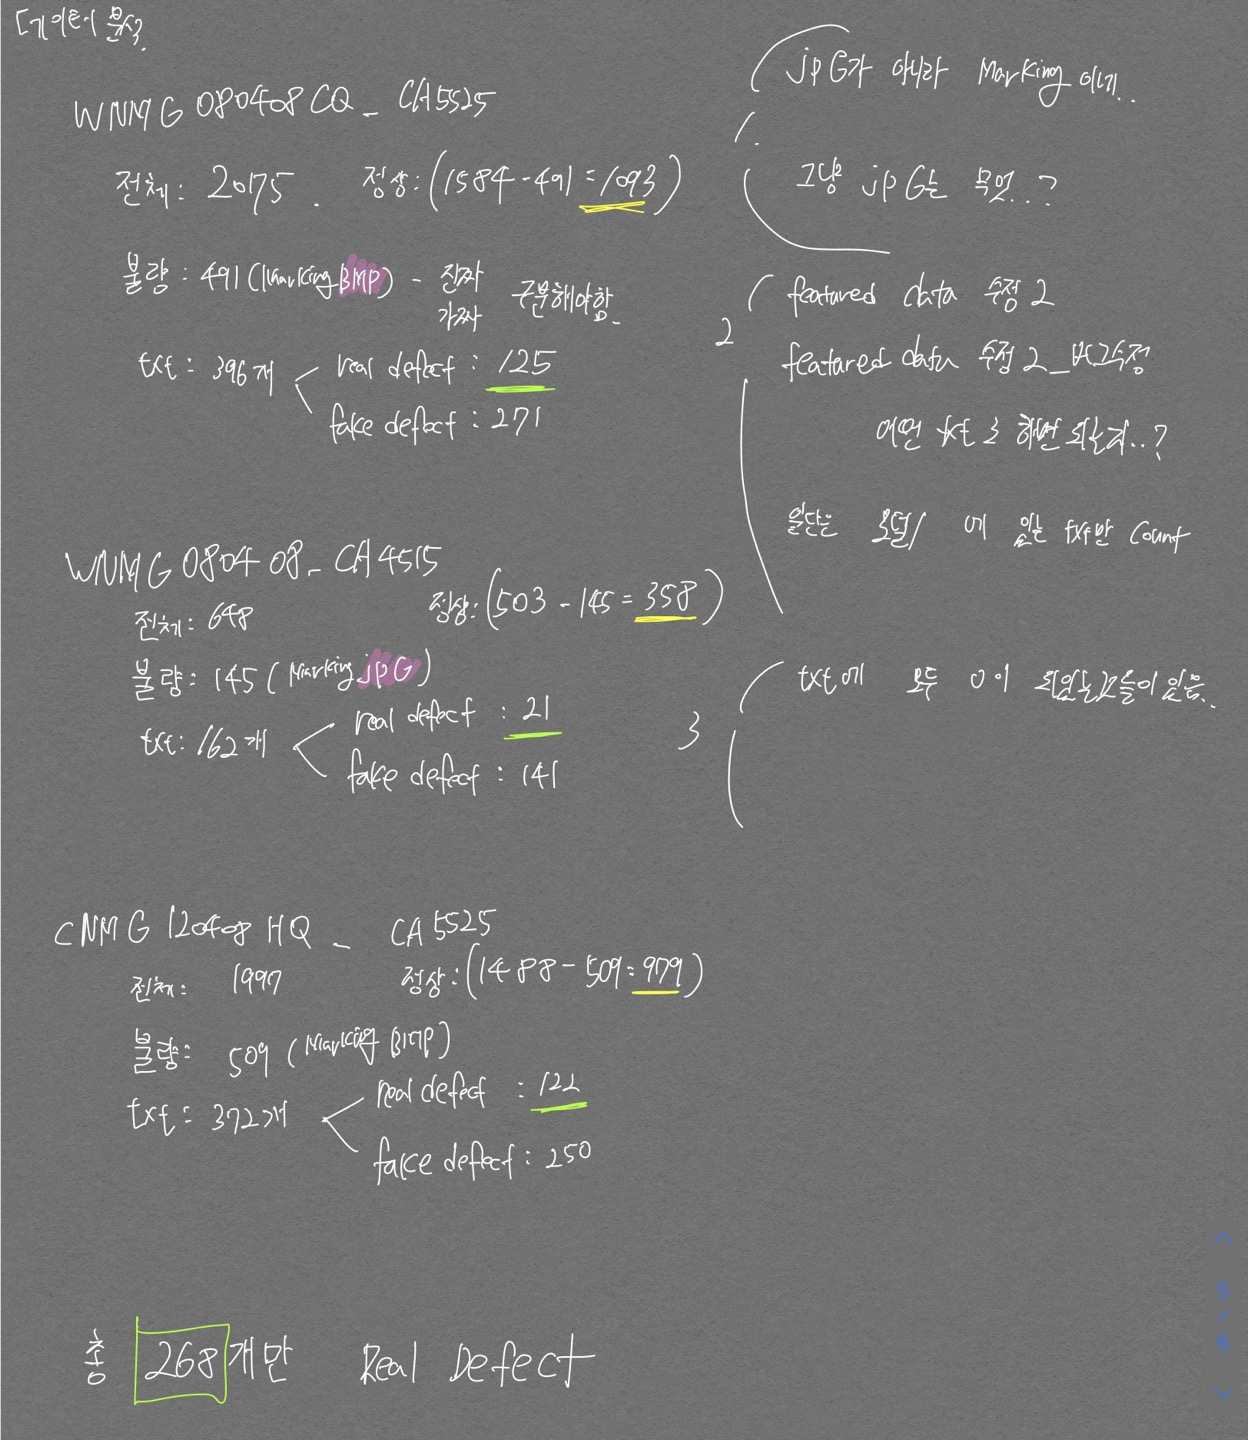 데이터 분석.
WNMG 080408CQ_ CA5525
전체: 2075. 정상: (1584-491=1093)
불량: 491 (Marking BMP) - 진짜
가짜
구분해야함.
txt: 396개
real defect: 125
fake defect: 271
WNMG 080408_ CA4515
정상: (503-145=358)
전체: 648
불량: 145 (Marking jpG)
txt: 162개
real defect: 21
fake defect: 141
CNMG 120408 HQ_ CA5525
전체: 1997 정상: (1488-509=979)
불량: 509 (Marking BMP)
txt: 372개
real defect: 122
fake defect: 250
총 268개만 Real Defect
1.
jpG가 아니라 Marking 이네..
그냥 jpG는 무엇..?
2
featured data 수정 2
featured data 수정 2_버그수정
어떤 txt로 하면 되는지..?
일단은 모델1 에 있는 txt만 Count
3
txt에 모두 0이 되있는것들이 있음..
5/6